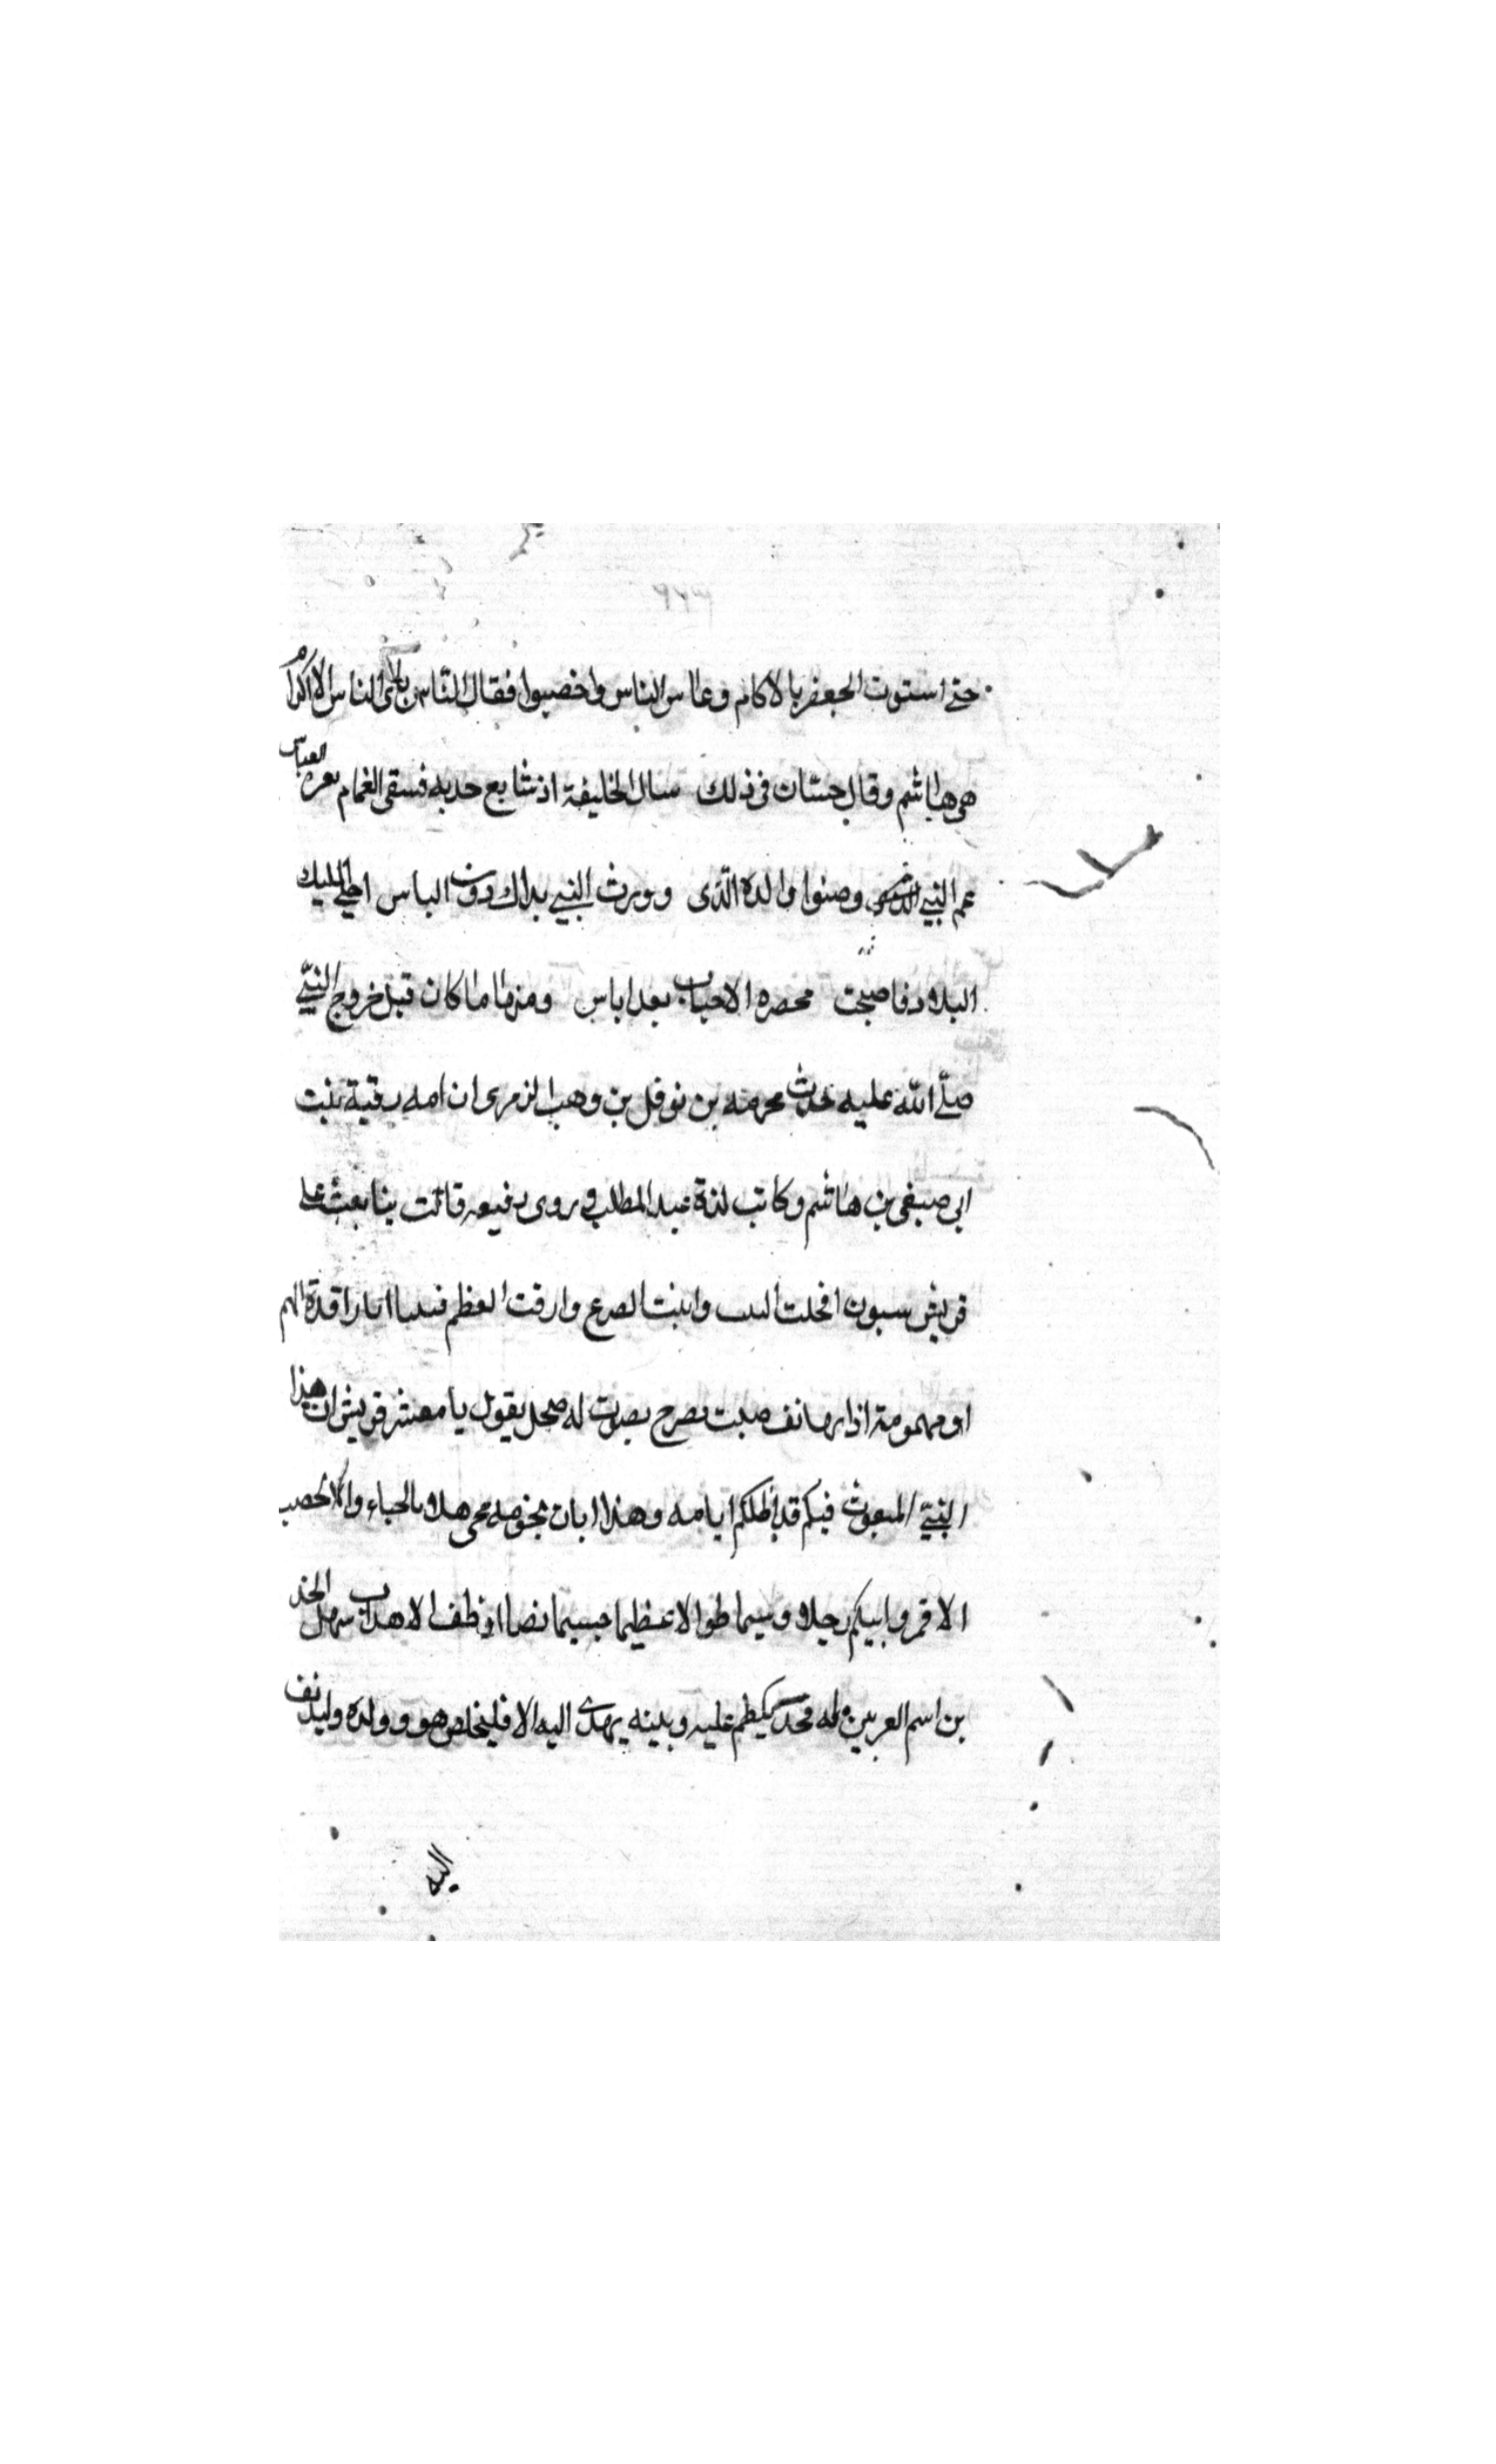 حتى استوت الجعفر بالاكام وعاس الناس واخصبوا فقال الناس الناس الاكرام
هى هاشم وقال حسّان فى ذلك سال الخليفة اذ تتابع حدبه فسقى الغمام بعره العبّاس
عم النبى وصنوا والده الّذى وورث النبى بداك دون الباس احيى المليك
البلاد فاصبحت محصره الاحباب بعد اباس ومنها ما كان قبل خروج النبىّ
صلّى الله عليه حدث محرمه بن نوفل بن وهب الزهرى ان امه رقية بنت
ابى صيفى بن هاشم وكانت لدة عبد المطلب روى قالت بتابعت على
قريش سبون اقحلت وابنت الصرع وارقت العظم فبينا انا راقدة اللهم
او مهمومة اذا بهاتف صلت يصرح بصوت له صحل يقول يا معشر قريش ان هذا
النبىّ المبعوث فيكم قد اظلكم ايامه وهذا ابان نجومه محى هلا بالحباء والاخصب
الا قمروا رجلا وسيما طوالا عظيما جسيما بضا اوظف الاهداب سهل الخد
بن اسم العربين وله فحد يكظم عليه وبينه يهدى اليه الا فليخلص هو وولده وليدنف
اليه
٢٢٣